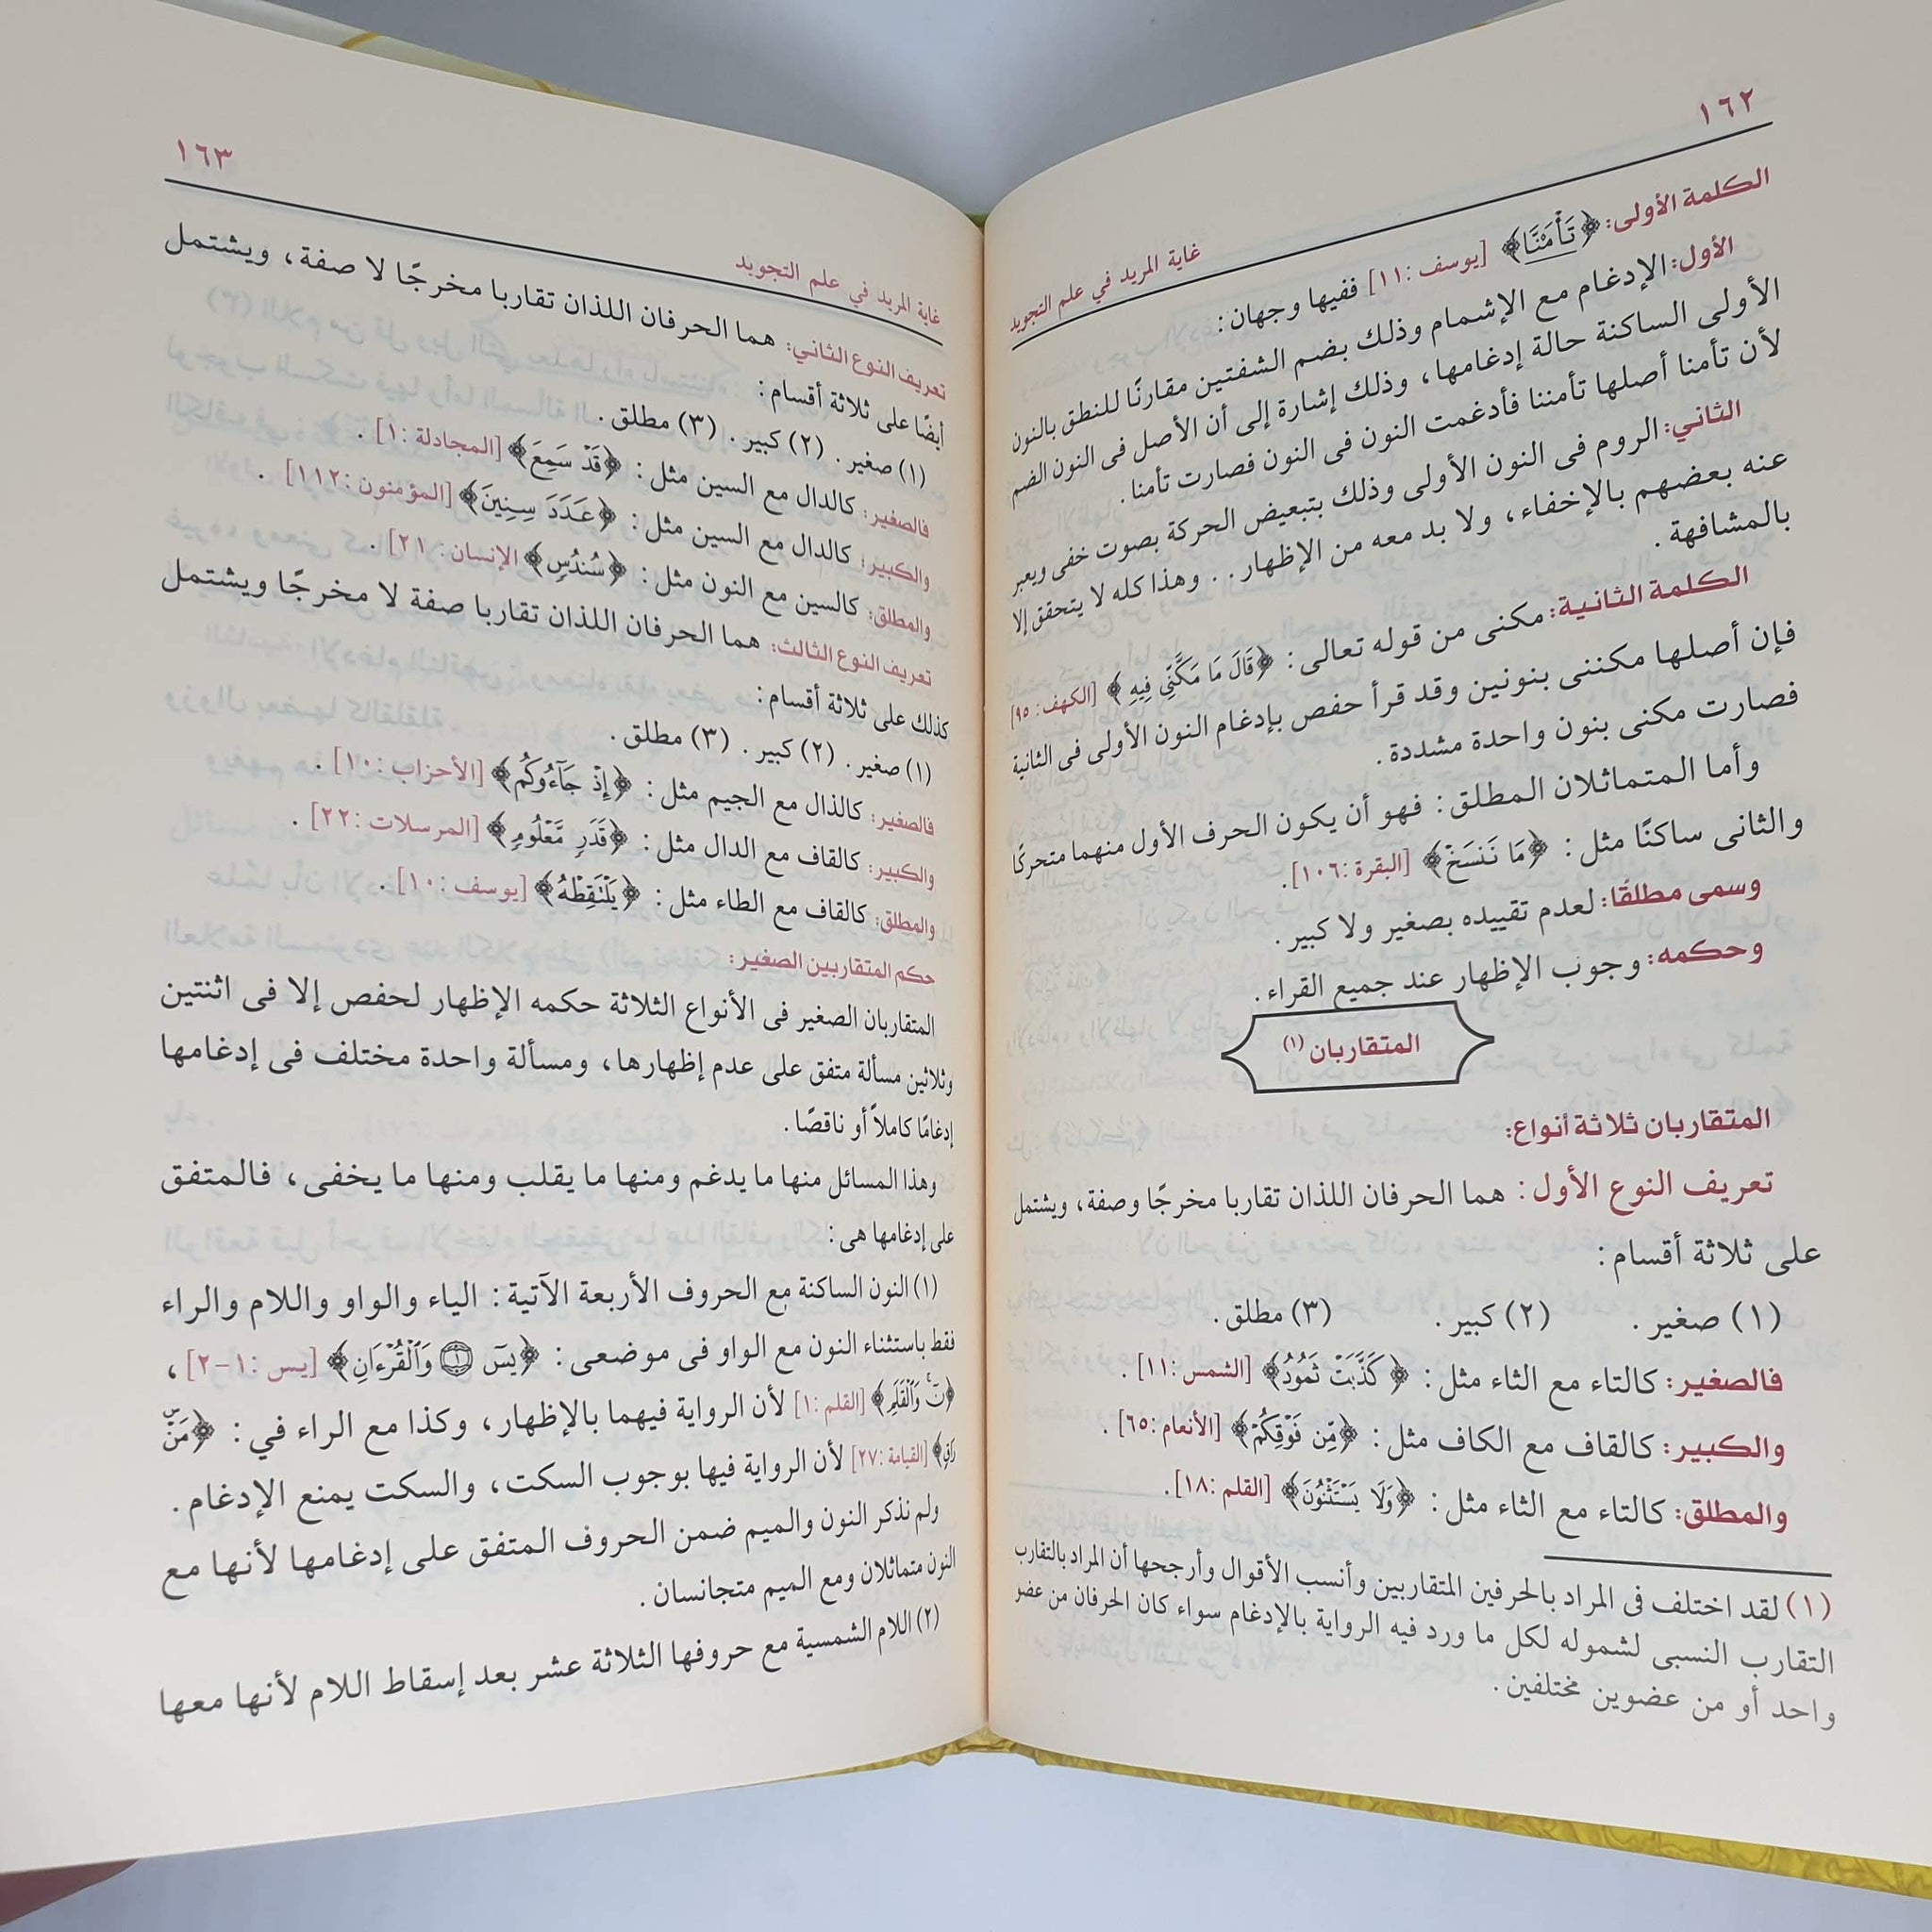 ١٦٢
غاية المريد في علم التجويد
الكلمة الأولى: ﴿تَأْمَ۫نَّا﴾ [يوسف : ١١] ففيها وجهان :
الأول: الإدغام مع الإشمام وذلك بضم الشفتين مقارنًا للنطق بالنون
الأولى الساكنة حالة إدغامها، وذلك إشارة إلى أن الأصل فى النون الضم
لأن تأمنا أصلها تأمننا فأدغمت النون فى النون فصارت تأمنا .
الثاني: الروم فى النون الأولى وذلك بتبعيض الحركة بصوت خفى ويعبر
عنه بعضهم بالإخفاء، ولا بد معه من الإظهار . . وهذا كله لا يتحقق إلا
بالمشافهة .
الكلمة الثانية: مكنى من قوله تعالى : ﴿قَالَ مَا مَكَّنِّي فِيهِ﴾ [الكهف : ٩٥]
فإن أصلها مكننى بنونين وقد قرأ حفص بإدغام النون الأولى فى الثانية
فصارت مكنى بنون واحدة مشددة .
وأما المتماثلان المطلق : فهو أن يكون الحرف الأول منهما متحركًا
والثانى ساكنًا مثل : ﴿مَا نَنسَخْ﴾ [البقرة : ١٠٦] .
وسمى مطلقًا: لعدم تقييده بصغير ولا كبير .
وحكمه: وجوب الإظهار عند جميع القراء .
المتقاربان (١)
المتقاربان ثلاثة أنواع:
تعريف النوع الأول : هما الحرفان اللذان تقاربا مخرجًا وصفة، ويشتمل
على ثلاثة أقسام :
(١) صغير . (٢) كبير . (٣) مطلق .
فالصغير: كالتاء مع الثاء مثل : ﴿كَذَّبَتْ ثَمُودُ﴾ [الشمس : ١١] .
والكبير: كالقاف مع الكاف مثل : ﴿مِّن فَوْقِكُمْ﴾ [الأنعام : ٦٥] .
والمطلق: كالتاء مع الثاء مثل : ﴿وَلَا يَسْتَثْنُونَ﴾ [القلم : ١٨] .
(١) لقد اختلف فى المراد بالحرفين المتقاربين وأنسب الأقوال وأرجحها أن المراد بالتقارب
التقارب النسبى لشموله لكل ما ورد فيه الرواية بالإدغام سواء كان الحرفان من عضو
واحد أو من عضوين مختلفين .
١٦٣
غاية المريد في علم التجويد
تعريف النوع الثاني: هما الحرفان اللذان تقاربا مخرجًا لا صفة، ويشتمل
أيضًا على ثلاثة أقسام :
(١) صغير . (٢) كبير . (٣) مطلق .
فالصغير: كالدال مع السين مثل : ﴿قَدْ سَمِعَ﴾ [المجادلة : ١] .
والكبير: كالدال مع السين مثل : ﴿عَدَدَ سِنِينَ﴾ [المؤمنون : ١١٢] .
والمطلق: كالسين مع النون مثل : ﴿سُندُسٍ﴾ الإنسان : ٢١] .
تعريف النوع الثالث: هما الحرفان اللذان تقاربا صفة لا مخرجًا ويشتمل
كذلك على ثلاثة أقسام :
(١) صغير . (٢) كبير . (٣) مطلق .
فالصغير: كالذال مع الجيم مثل : ﴿إِذْ جَآءُوكُم﴾ [الأحزاب : ١٠] .
والكبير: كالقاف مع الدال مثل : ﴿قَدَرٍ مَّعْلُومٍ﴾ [المرسلات : ٢٢] .
والمطلق: كالقاف مع الطاء مثل : ﴿يَلْتَقِطْهُ﴾ [يوسف : ١٠] .
حكم المتقاربين الصغير:
المتقاربان الصغير فى الأنواع الثلاثة حكمه الإظهار لحفص إلا فى اثنتين
وثلاثين مسألة متفق على عدم إظهارها، ومسألة واحدة مختلف فى إدغامها
إدغامًا كاملاً أو ناقصًا .
وهذا المسائل منها ما يدغم ومنها ما يقلب ومنها ما يخفى، فالمتفق
على إدغامها هى :
(١) النون الساكنة مع الحروف الأربعة الآتية : الياء والواو واللام والراء
فقط باستثناء النون مع الواو فى موضعى : ﴿يسٓ ۝١ وَٱلْقُرْءَانِ﴾ [يس : ١-٢] ،
﴿نٓ وَٱلْقَلَمِ﴾ [القلم : ١] لأن الرواية فيهما بالإظهار، وكذا مع الراء في : ﴿مَنْۜ
رَاقٍ﴾ [القيامة : ٢٧] لأن الرواية فيها بوجوب السكت، والسكت يمنع الإدغام .
ولم نذكر النون والميم ضمن الحروف المتفق على إدغامها لأنها مع
النون متماثلان ومع الميم متجانسان .
(٢) اللام الشمسية مع حروفها الثلاثة عشر بعد إسقاط اللام لأنها معها